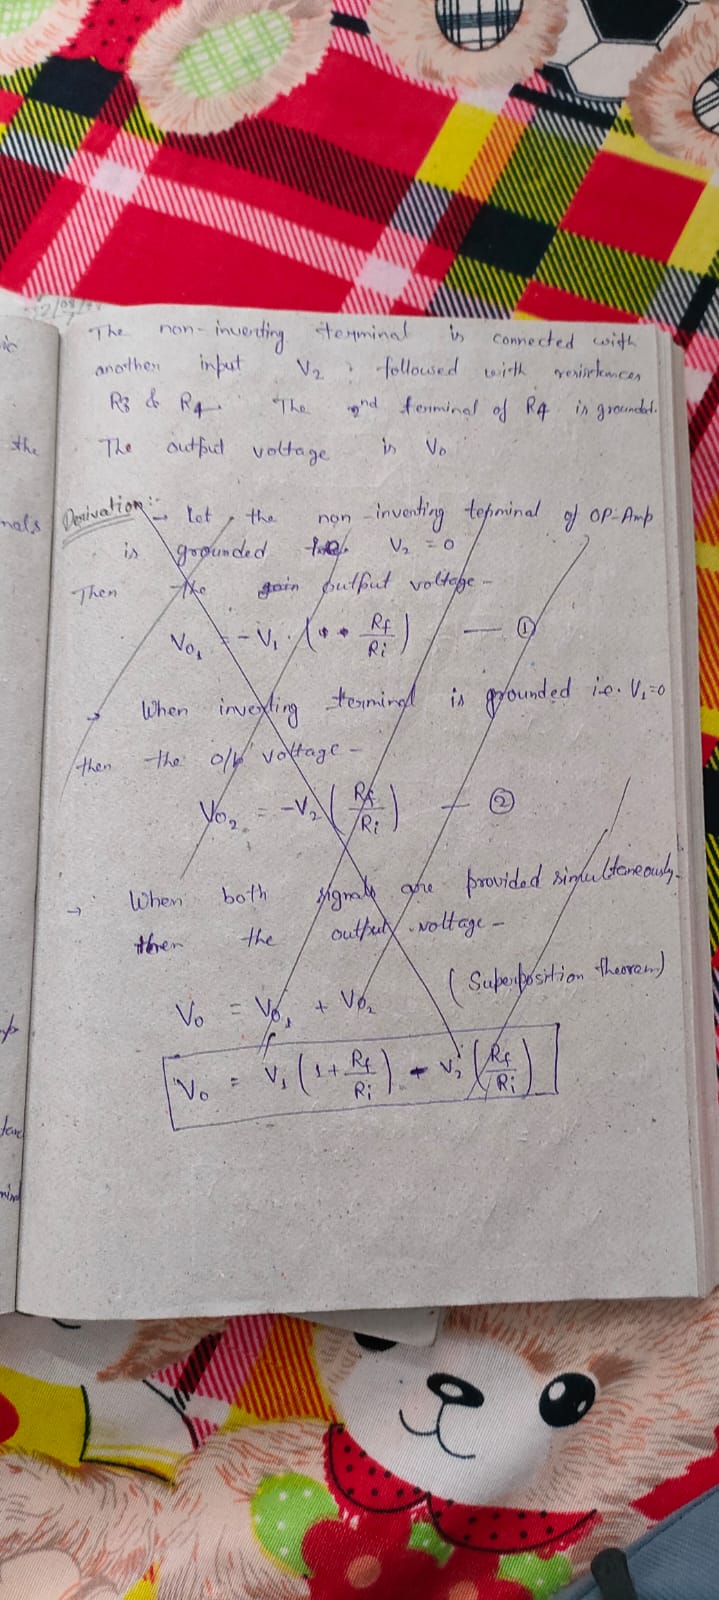 The non-inverting terminal is connected with
another input V₂ followed with resistances
R3 & R4. The 2nd terminal of R4 is grounded.
The output voltage is Vo
Derivation :- → Let the non-inverting terminal of OP-Amp
is grounded i.e. V₂ = 0
Then the gain output voltage -
Vo₁ = - V₁ . ( Rf/Ri ) — ①
→ When inverting terminal is grounded i.e. V₁=0
then the o/p voltage -
Vo₂ = -V₂ ( Rf/Ri ) — ②
→ When both signals are provided simultaneously-
then the output voltage -
(Superposition theorem)
Vo = Vo₁ + Vo₂
Vo = V₁ ( 1 + Rf/Ri ) - V₂ ( Rf/Ri )
ic
the
nals